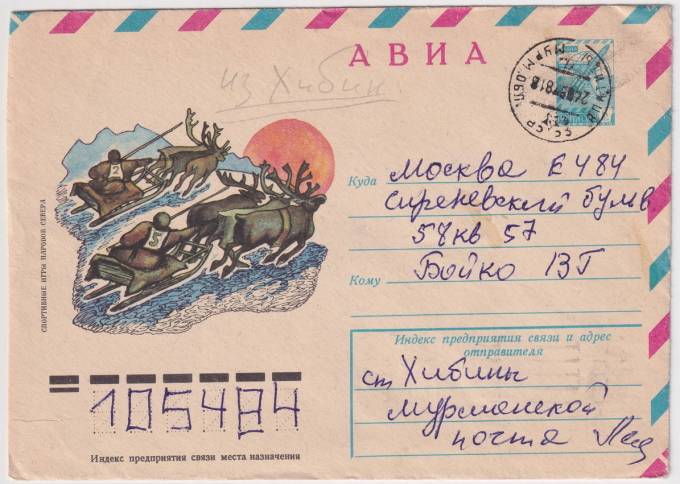 АВИА
из Хибин
СПОРТИВНЫЕ ИГРЫ НАРОДОВ СЕВЕРА
2
3
Куда Москва Е 484
Сиреневский бульв
58 кв 57
Кому Бойко В Г
Индекс предприятия связи и адрес
отправителя
ст Хибины
Мурманской
почта
105484
Индекс предприятия связи места назначения